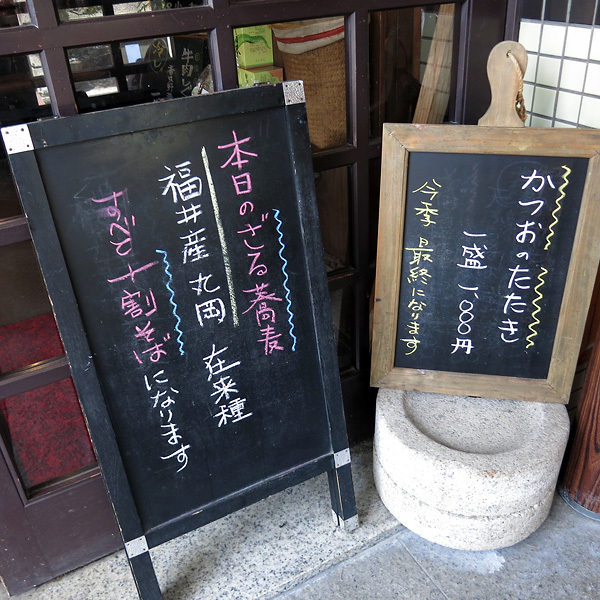 本日のざる蕎麦
福井産 丸岡 在来種
すべて十割そばになります
かつおのたたき
一盛 一、〇〇〇円
今季最終になります